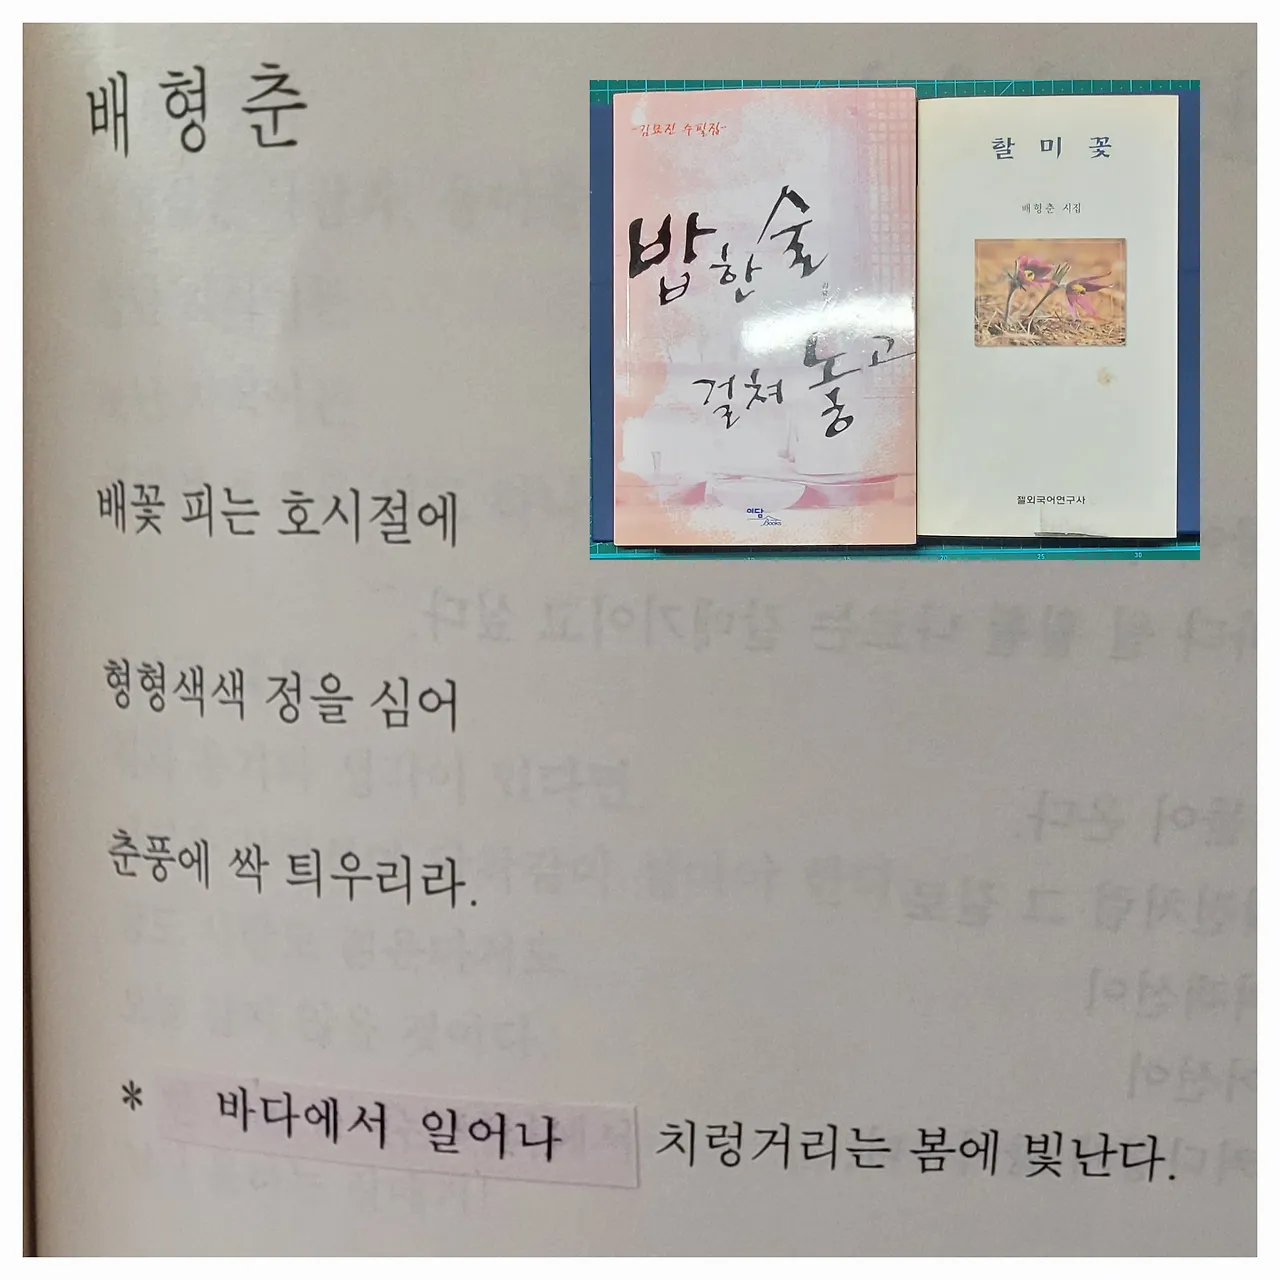 배 형 춘
배꽃 피는 호시절에
형형색색 정을 심어
춘풍에 싹 틔우리라.
* 바다에서 일어나 치렁거리는 봄에 빛난다.
-김묘진 수필집-
밥 한 술
걸쳐 놓고
이담
Books
할 미 꽃
배형춘 시집
젤외국어연구사
25
30